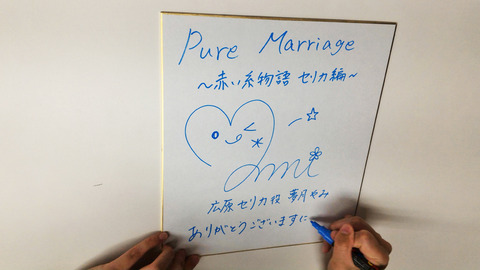 Pure Marriage
～赤い糸物語 セリカ編～
広原 セリカ役 夢月やみ
ありがとうございますに